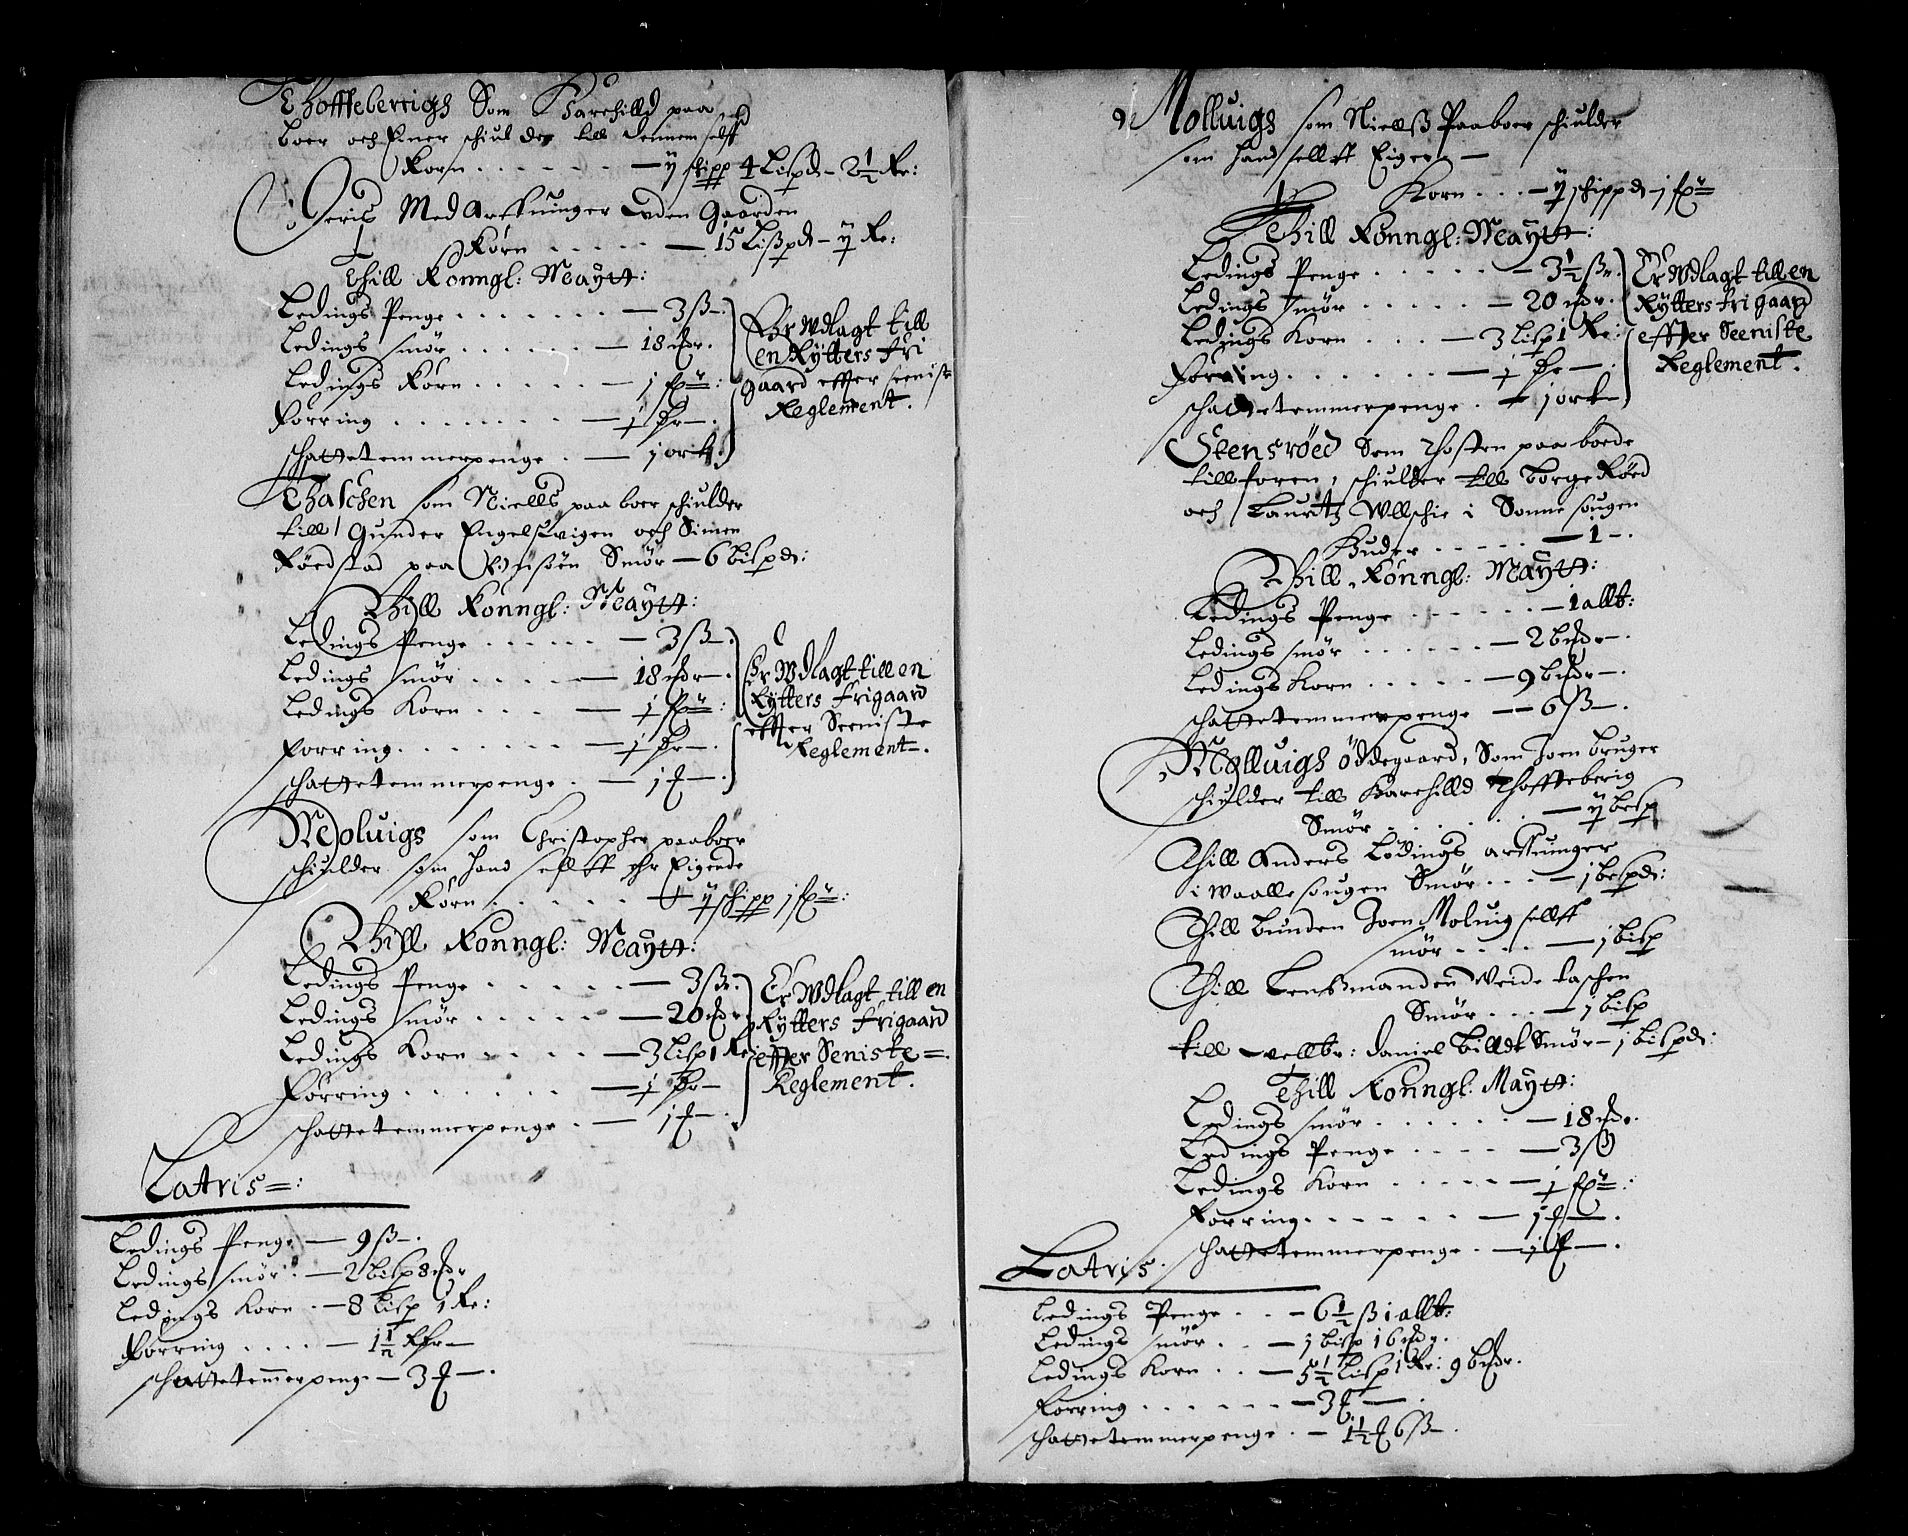 Thoffteberrigs Som Karehilld paa
boer och Einer schiul der till dennem sellff
Korn . . . . . . — ÿ skipp 4 Lispd — 2½ Re:
Jeris Med Arffuinger Vden Gaarden
Korn . . . . . — 15 Lißpd — ÿ Re:
Thill Konngl: Maytt:
Ledings Penge . . . . . . . — 3 ß — .
Ledings smör . . . . . . — 18 mdr.
Ledings Korn . . . . . — j fr:
Forring . . . . . . . — j Hr — .
schattetemmerpenge . — j ort.
Er Wdlagt till
en Rÿtters fri
gaard effter seenist
Reglement.
Thaschen som Niells paa boer schiulder
till Gunder Engelsvigen och Simen
Rördstad paa Smör — 6 bispd:
Thill Konngl: Maytt:
Ledings Penge . . . . . — 3 ß — .
Ledings smör . . . . . — 18 mdr — .
Ledings Korn . . . . — j fr:
Forring . . . . . . . — j Hr — .
schattetemmerpenge . — 1 — .
Er Wdlagt till en
Rÿtters frigaard
effter Seeniste
Reglement — .
Moluigs som Christopher paaboer
schiulder som hand sellff ehr Eigende
Korn . . . . . — ÿ skipp j fr:
Thill Konngl: Maytt:
Ledings Penge . . . . . — 3 ß .
Ledings smör . . . . . — 20 mdr
Ledings Korn . . . . — 3 Lisp 1 Re
Forring . . . . . . — j Hr —
schattetemmerpenge . — 1 — .
Er Wdlagt till en
Rÿtters frigaard
effter Seniste = .
Reglement.
Latris = :
Ledings Penge — 9 ß — .
Ledings smör . — 2 bisp 8 mdr
Ledings Korn . — 8 Lisp 1 Re:
Forring . . . . — 1½ —
schattetemmerpenge — 3 — .
Molluigs som Nielß Paaboer schiulder
som hand sellff Eiger —
Korn . . . — ÿ schippd — j fr
Thill Konngl: Maytt:
Ledings Penge . . . . . — 3½ ß .
Ledings smör . . . . . — 20 mdr .
Ledings Korn . . . — 3 Lisp 1 Re:
Forring . . . . . . — j Hr — .
schattetemmerpenge . — j ort
Er Wdlagt till en
Rÿtters frigaard
effter Seeniste
Reglement.
Stensröed Som Thosten paa boede
tillforen, schiulder till borge Röed
och Lauritz Wllschie i Sonne sougen
Huder . . . . . — 1 — .
Thill Konngl: Maytt:
Ledings Penge . . . . . . — 1 allb:
Ledings smör . . . . . . — 2 bmdr — .
Ledings Korn . . . . . — 9 bmdr — .
schattetemmerpenge — 6 ß — .
Molluigs Öddegaard, Som Joen bruger
schiulder till Karehilld Thoffteberig
Smör . . . . . . — ÿ bisp
Thill Anders Lödings arffuinger
i Waalle sougen Smör . . . — j bispd:
Thill bunden Joen Moluig sellff
smör . . . . — j bisp
Thill Lenßmanden Weide taschen
Smör . . . — j bisp
till vellbr: Daniel billdt Smör — j bispd:
Thill Konngl: Maytt:
Ledings smör . . . . . . — 18 mdr.
Ledings Penge . . . . — 3 ß
Ledings Korn . . . . . — j fr:
Forring . . . . . . — 1 — .
schattetemmerpenge . — — .
Latris.
Ledings Penge . . . — 6½ ß 1 allb:
Ledings smör . . — j bisp 16 mdr.
Ledings Korn . . — 5½ Lisp 1 Re: 9 bmdr.
Forring . . . . . . — 3 — .
schattetemmerpenge . — 1½ 6 ß — .